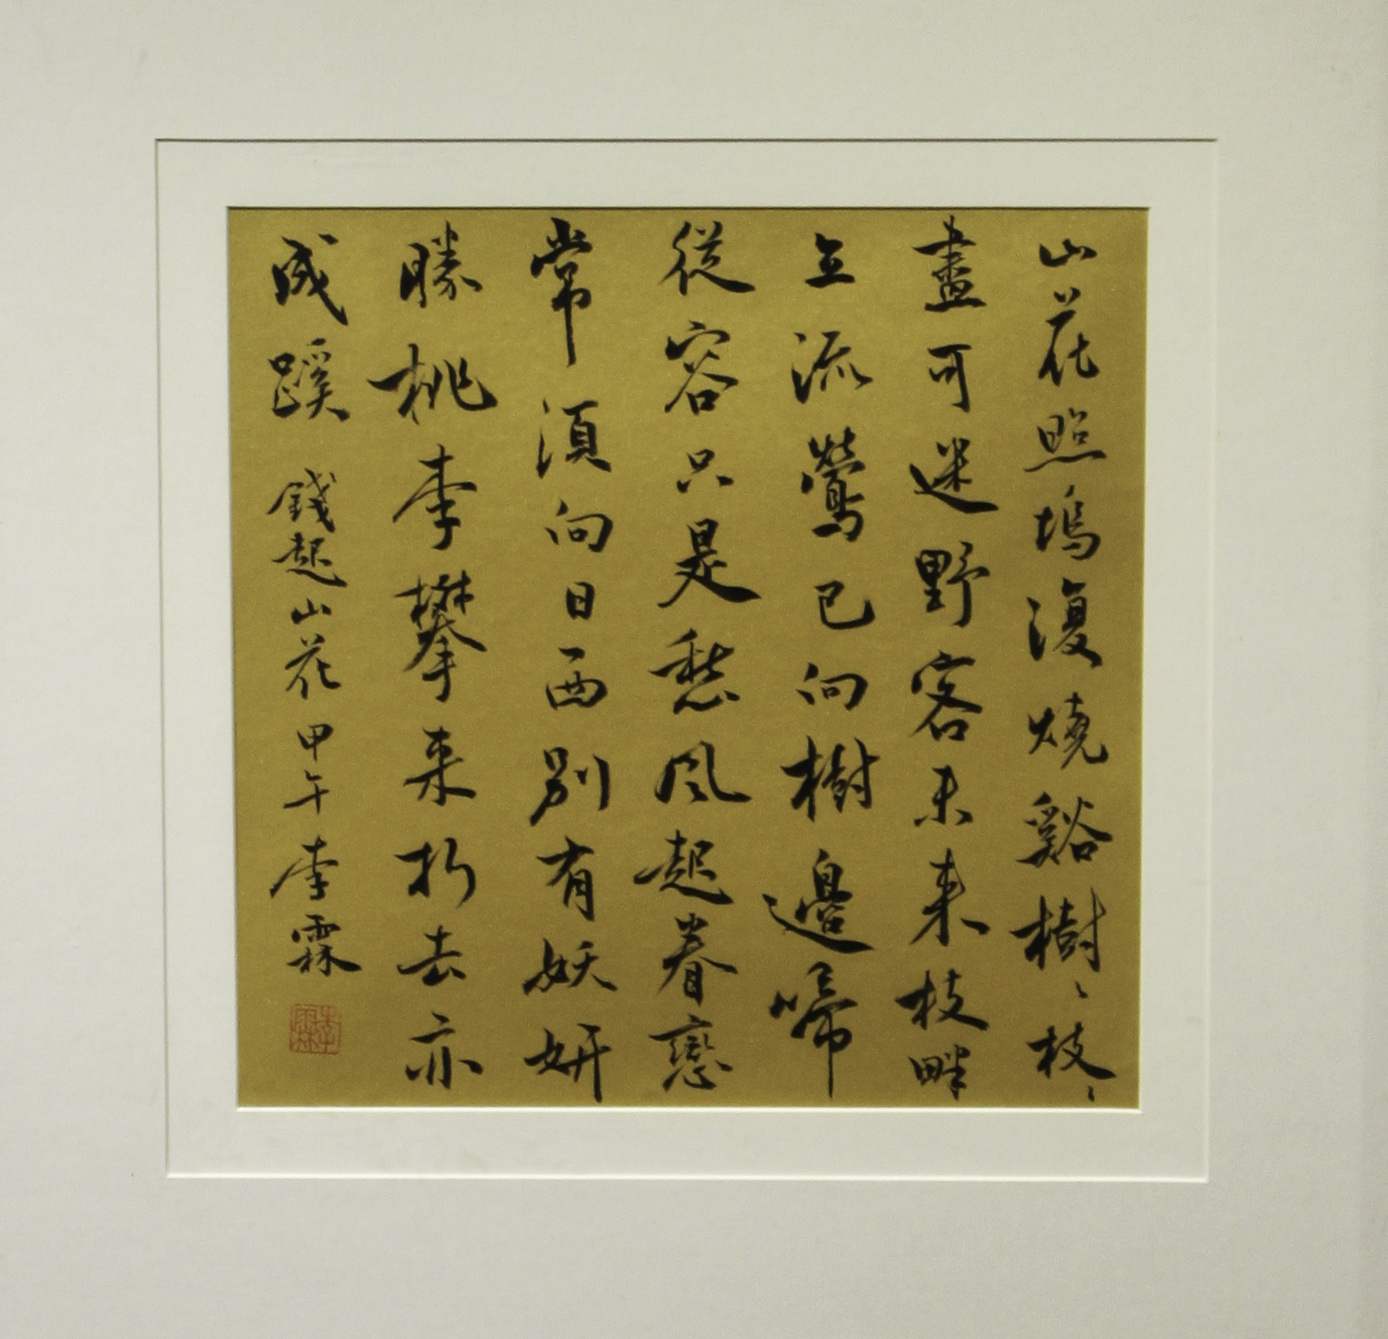 山花照塢復燒谿樹〻枝〻
盡可迷野客未來枝畔
立流鶯已向樹邊啼
從容只是愁風起眷戀
常須向日西別有妖妍
勝桃李攀來折去亦
成蹊 錢起山花 甲午 李霖
李霖